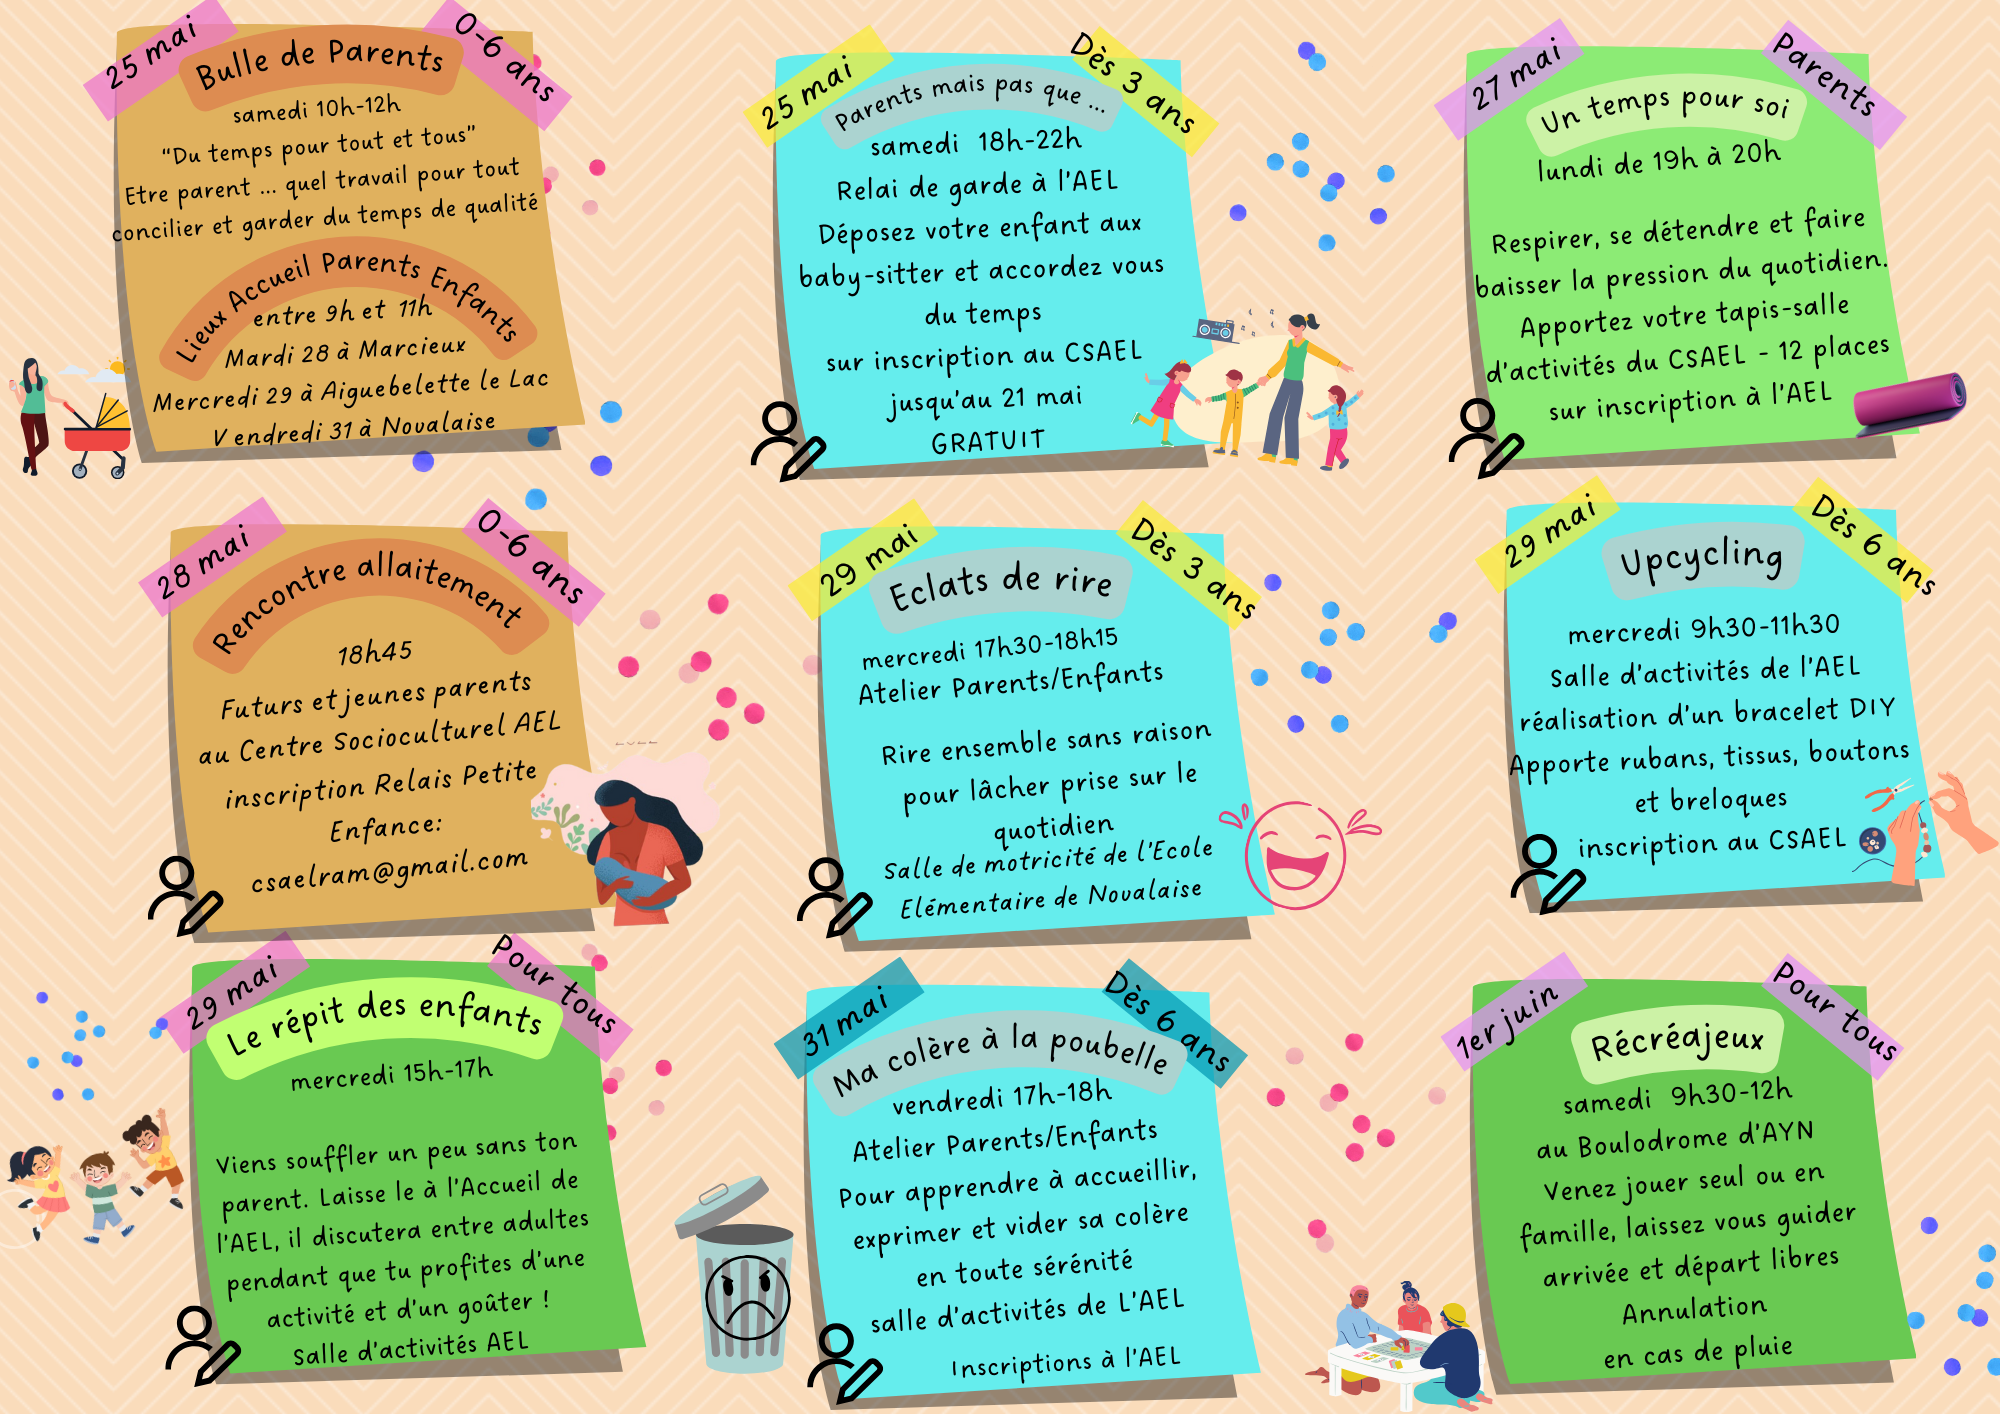 25 mai
0-6 ans
Bulle de Parents
samedi 10h-12h
“Du temps pour tout et tous”
Etre parent ... quel travail pour tout
concilier et garder du temps de qualité
Lieux Accueil Parents Enfants
entre 9h et 11h
Mardi 28 à Marcieux
Mercredi 29 à Aiguebelette le Lac
V endredi 31 à Novalaise
25 mai
Dès 3 ans
Parents mais pas que ...
samedi 18h-22h
Relai de garde à l'AEL
Déposez votre enfant aux
baby-sitter et accordez vous
du temps
sur inscription au CSAEL
jusqu'au 21 mai
GRATUIT
27 mai
Parents
Un temps pour soi
lundi de 19h à 20h
Respirer, se détendre et faire
baisser la pression du quotidien.
Apportez votre tapis-salle
d'activités du CSAEL - 12 places
sur inscription à l'AEL
28 mai
0-6 ans
Rencontre allaitement
18h45
Futurs et jeunes parents
au Centre Socioculturel AEL
inscription Relais Petite
Enfance:
csaelram@gmail.com
29 mai
Dès 3 ans
Eclats de rire
mercredi 17h30-18h15
Atelier Parents/Enfants
Rire ensemble sans raison
pour lâcher prise sur le
quotidien
Salle de motricité de l'Ecole
Elémentaire de Novalaise
29 mai
Dès 6 ans
Upcycling
mercredi 9h30-11h30
Salle d'activités de l'AEL
réalisation d'un bracelet DIY
Apporte rubans, tissus, boutons
et breloques
inscription au CSAEL
29 mai
Pour tous
Le répit des enfants
mercredi 15h-17h
Viens souffler un peu sans ton
parent. Laisse le à l'Accueil de
l'AEL, il discutera entre adultes
pendant que tu profites d'une
activité et d'un goûter !
Salle d'activités AEL
31 mai
Dès 6 ans
Ma colère à la poubelle
vendredi 17h-18h
Atelier Parents/Enfants
Pour apprendre à accueillir,
exprimer et vider sa colère
en toute sérénité
salle d'activités de L'AEL
Inscriptions à l'AEL
1er juin
Pour tous
Récréajeux
samedi 9h30-12h
au Boulodrome d'AYN
Venez jouer seul ou en
famille, laissez vous guider
arrivée et départ libres
Annulation
en cas de pluie